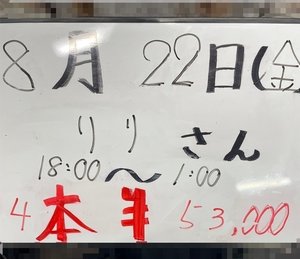 8月22日(金
りりさん
18:00〜1:00
4本半 53,000